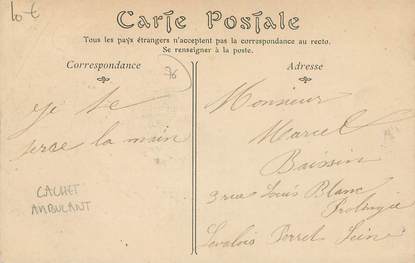 10 €
Carte Postale
Tous les pays étrangers n'acceptent pas la correspondance au recto.
Se renseigner à la poste.
Correspondance
Adresse
76
Je te
serre la main
CACHET
AMBULANT
Monsieur
Marcel
Baissin
3 rue Louis Blanc
Prolongée
Levalois Perret Seine